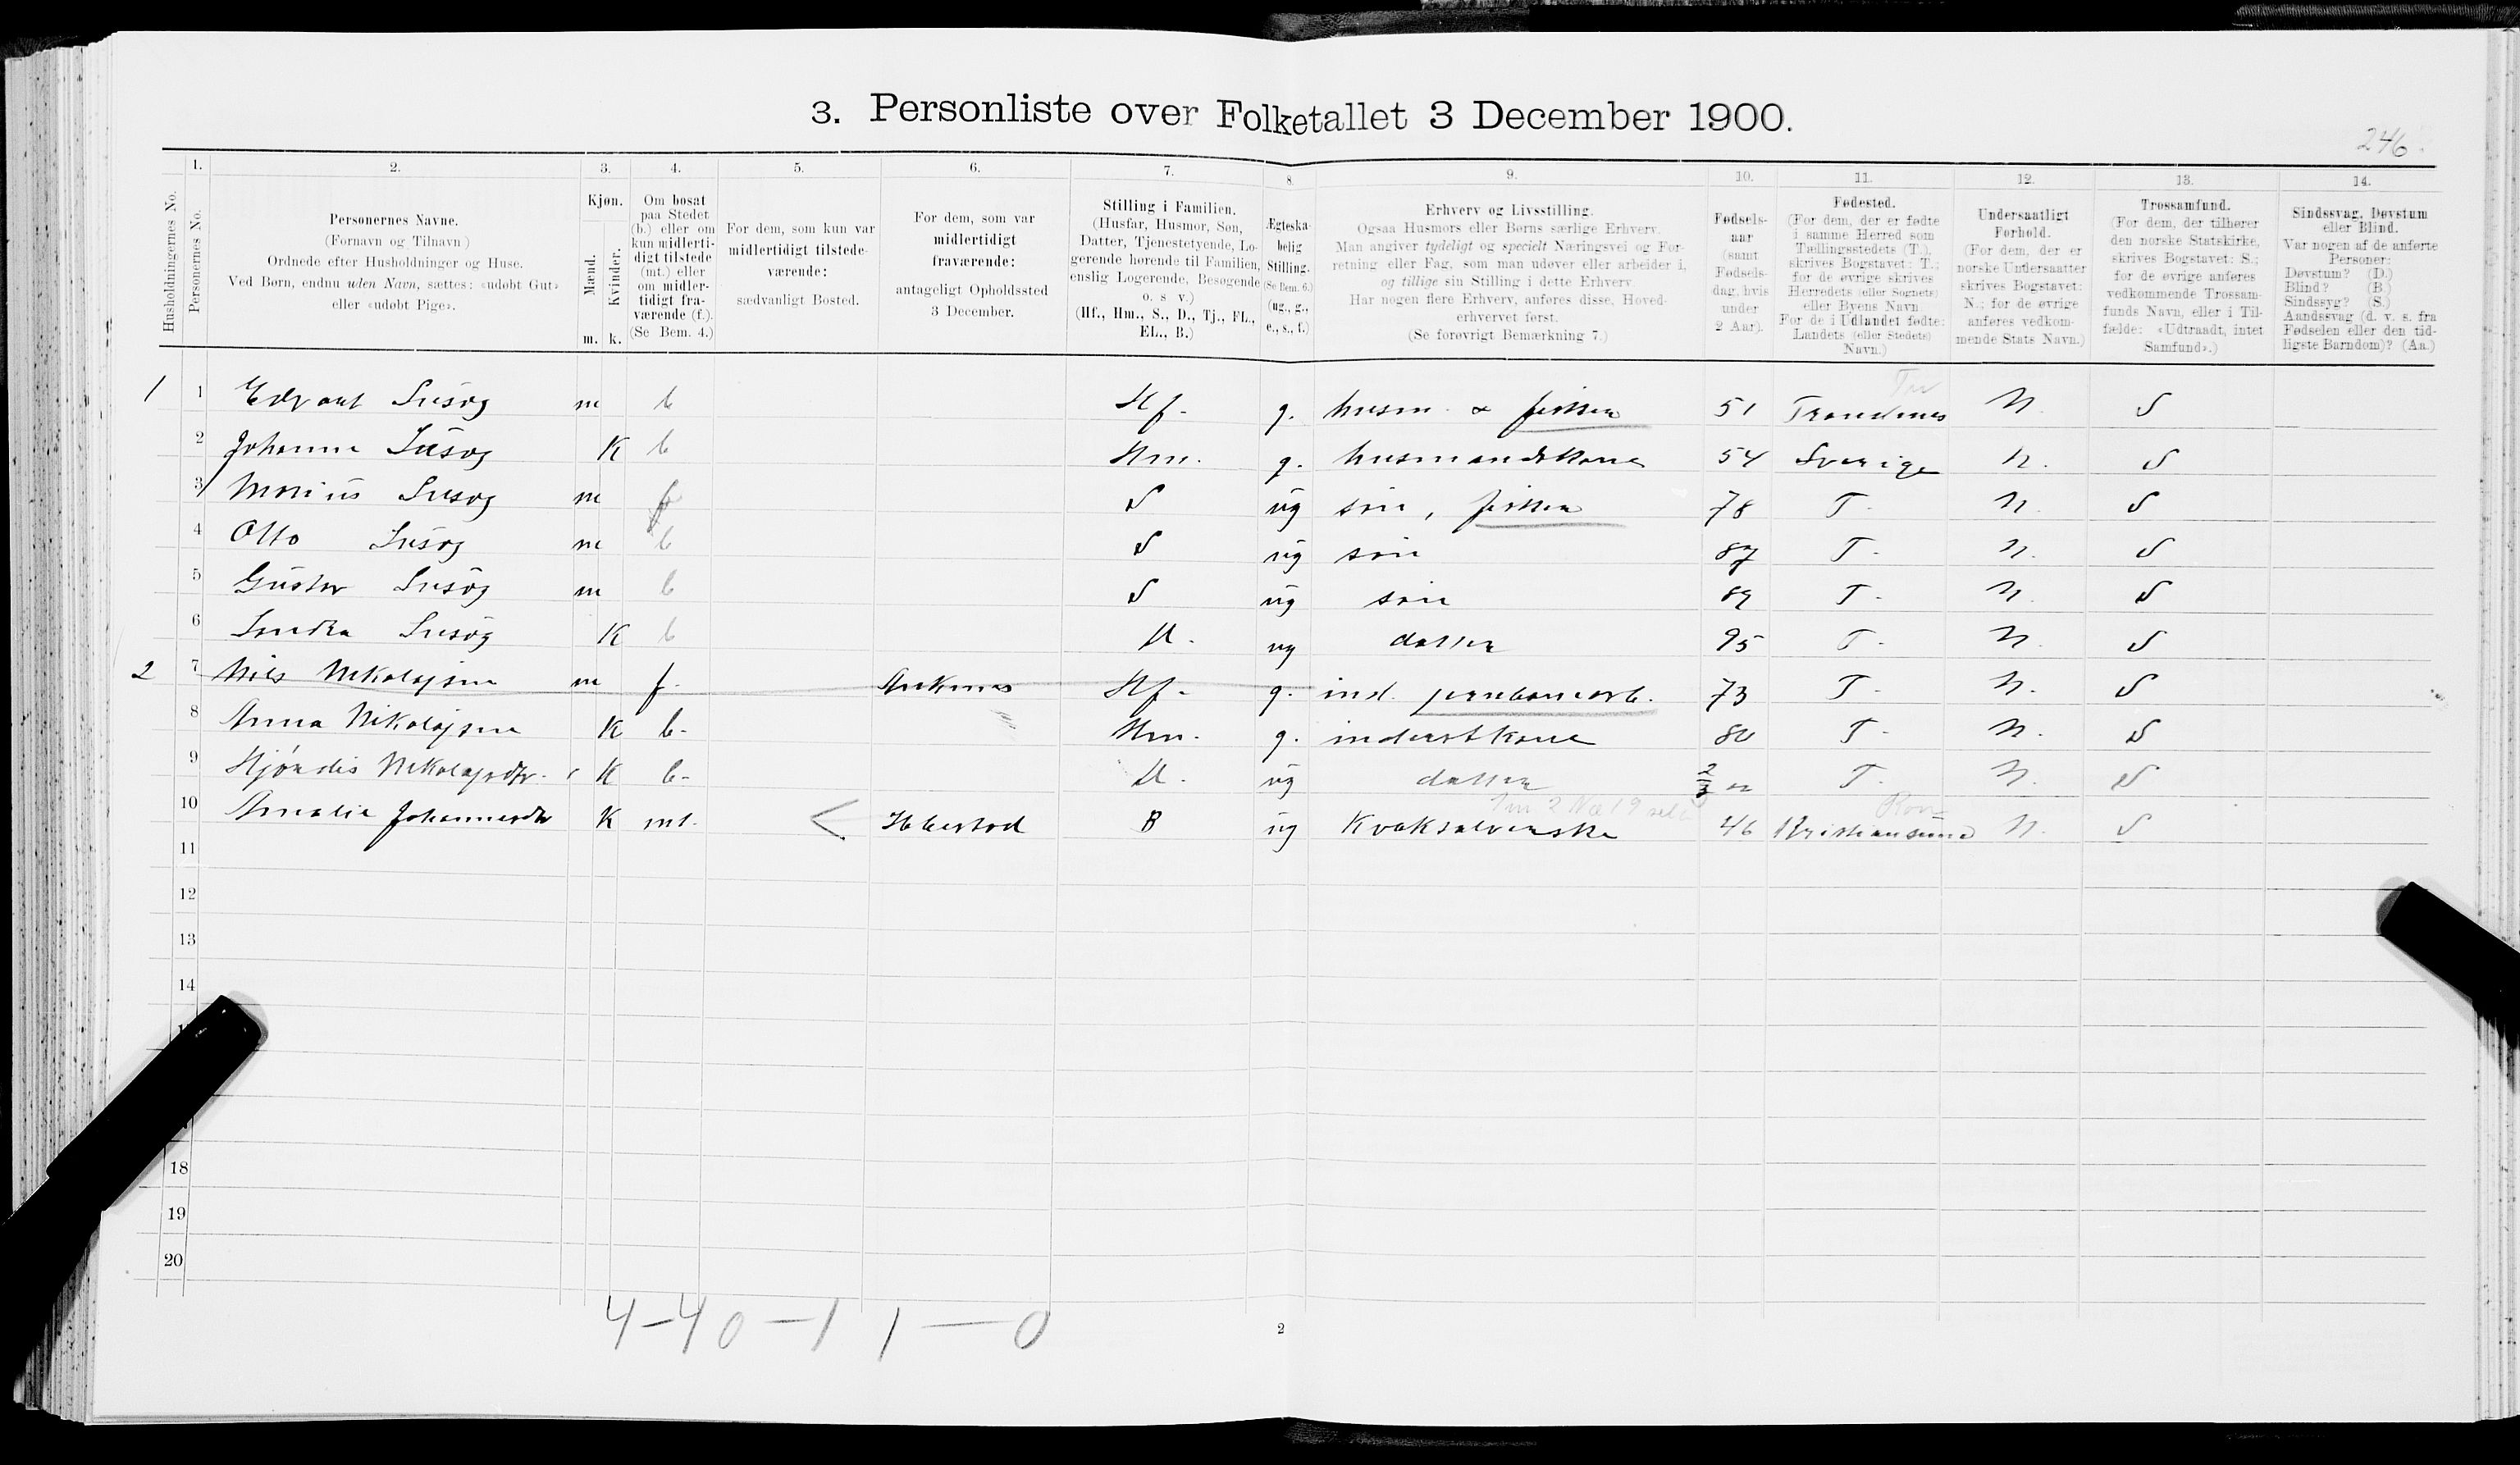 3. Personliste over Folketallet 3 December 1900.
246.
Husholdningernes No.
1.
Personernes No.
2.
Personernes Navne.
(Fornavn og Tilnavn)
Ordnede efter Husholdninger og Huse.
Ved Børn, endnu uden Navn, sættes: «udøbt Gut»
eller «udøbt Pige».
3.
Kjøn.
Mænd.
Kvinder.
m. k.
4.
Om bosat
paa Stedet
(b.) eller om
kun midlerti-
digt tilstede
(mt.) eller
om midler-
tidigt fra-
værende (f.).
(Se Bem. 4.)
5.
For dem, som kun var
midlertidigt tilstede-
værende:
sædvanligt Bosted.
6.
For dem, som var
midlertidigt
fraværende:
antageligt Opholdssted
3 December.
7.
Stilling i Familien.
(Husfar, Husmor, Søn,
Datter, Tjenestetyende, Lo-
gerende hørende til Familien,
enslig Logerende, Besøgende
o. s v.)
(Hf., Hm., S., D., Tj., FL.,
EL., B.)
8.
Ægteska-
belig
Stilling.
(Se Bem. 6.)
(ug., g.,
e., s., f.)
9.
Erhverv og Livsstilling.
Ogsaa Husmors eller Børns særlige Erhverv.
Man angiver tydeligt og specielt Næringsvei og For-
retning eller Fag, som man udøver eller arbeider i,
og tillige sin Stilling i dette Erhverv.
Har nogen flere Erhverv, anføres disse, Hoved-
erhvervet først.
(Se forøvrigt Bemærkning 7.)
10.
Fødsels-
aar
(samt
Fødsels-
dag, hvis
under
2 Aar).
11.
Fødested.
(For dem, der er fødte
i samme Herred som
Tællingsstedets (T.),
skrives Bogstavet: T.;
for de øvrige skrives
Herredets (eller Sognets)
eller Byens Navn
For de i Udlandet fødte:
Landets (eller Stedets)
Navn.)
12.
Undersaatligt
Forhold.
(For dem, der er
norske Undersaatter
skrives Bogstavet:
N.; for de øvrige
anføres vedkom-
mende Stats Navn.)
13.
Trossamfund.
(For dem, der tilhører
den norske Statskirke,
skrives Bogstavet: S.;
for de øvrige anføres
vedkommende Trossam-
funds Navn, eller i Til-
fælde: «Udtraadt, intet
Samfund».)
14.
Sindssvag, Døvstum
eller Blind.
Var nogen af de anførte
Personer:
Døvstum? (D.)
Blind? (B.)
Sindssyg? (S.)
Aandssvag (d. v. s. fra
Fødselen eller den tid-
ligste Barndom)? (Aa.)
1 1 Edvart m b Hf. g. husm. & fisker 51 Trondenes N. S
2 Johanna K b Hm. g. husmandskone 54 Sverige N. S
3 m f S ug søn, fisker 78 T. N. S
4 Otto m b S ug søn 87 T. N. S
5 Gustav m b S ug søn 89 T. N. S
6 K b D. ug datter 95 T. N. S
2 7 Nils Nikolajsen m f. Ankenes Hf. g. ind. jernbanearb. 73 T. N. S
8 Anna Nikolajsen K b. Hm. g. inderstkone 80 T. N. S
9 Hjørdis Nikolajsdtr. K b. D. ug datter T. N. S
10 Amalie K mt. < Ibbestad B ug Kvaksalverske 46 Kristiansund N. S
11
12
13
14
18
19
20
4-4 0-1 1-0
2